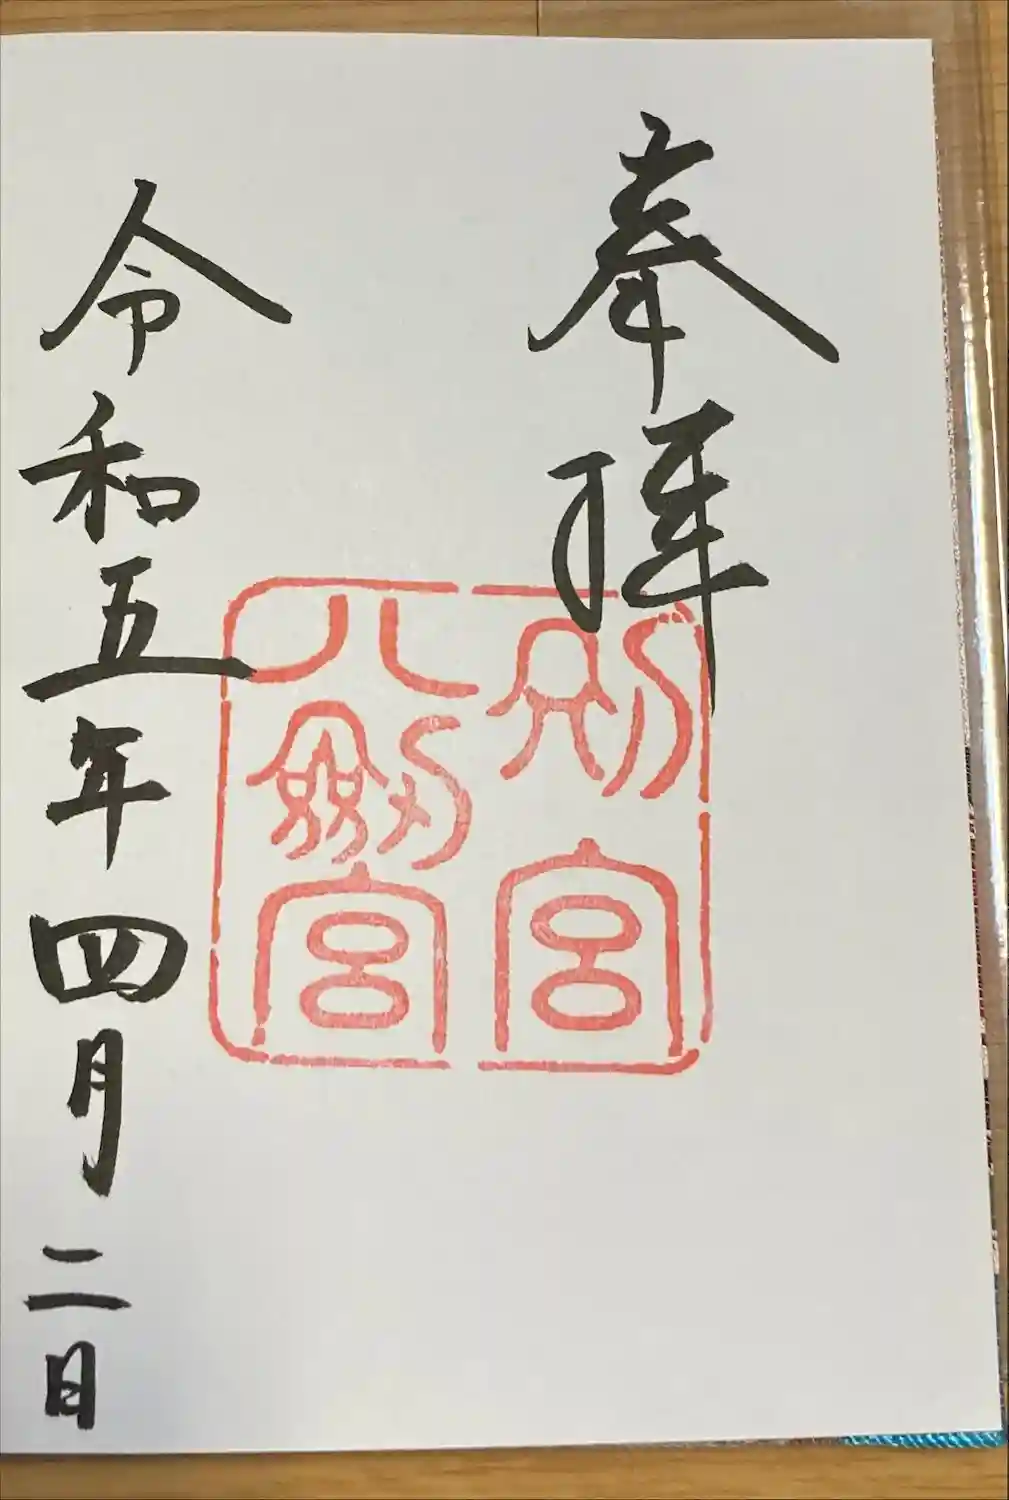 奉拝
別宮
八劔宮
令和五年四月二日